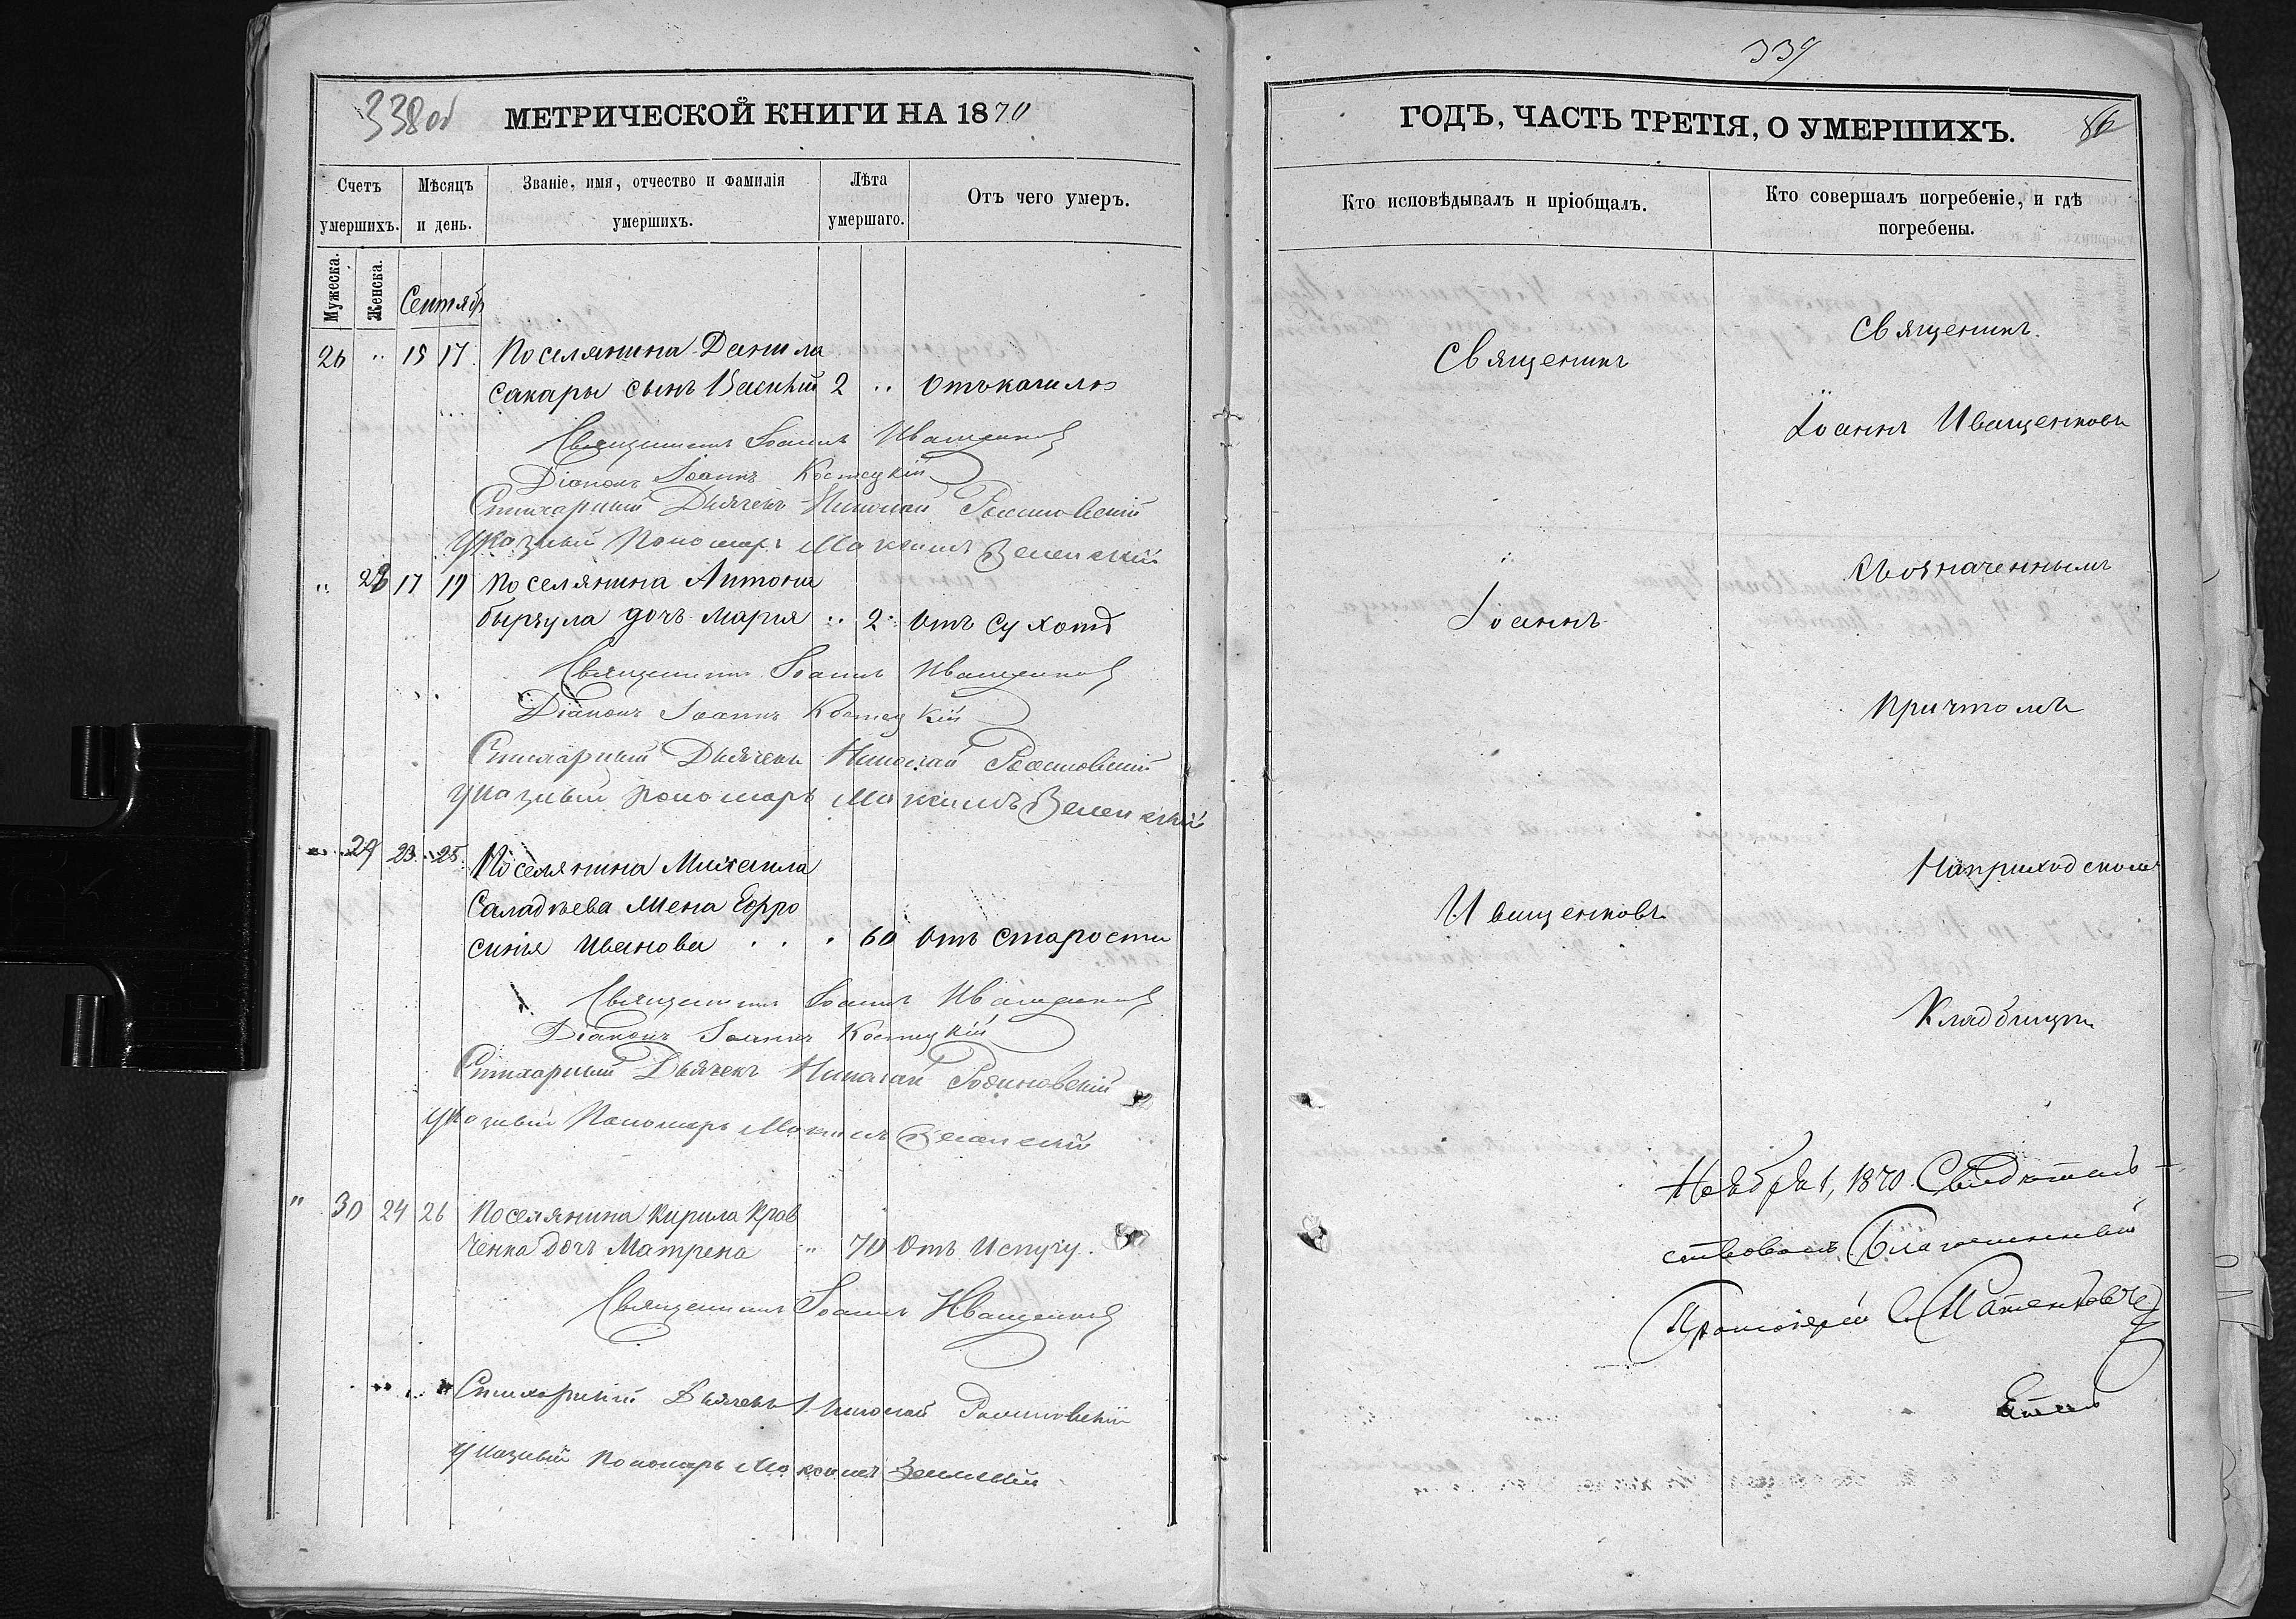 338об
МЕТРИЧЕСКОЙ КНИГИ НА 1870
Счетъ умершихъ.
Мѣсяцъ и день.
Званіе, имя, отчество и фамилія умершихъ.
Лѣта умершаго.
Отъ чего умеръ.
Мужеска.
Женска.
Сентябр
26 " 15 17 Поселянина Данила
Сакары сынъ Василій 2 " Отъ кашлю
Священникъ Іоаннъ Иващенковъ
Діаконъ Іоаннъ Костецкій
Стихарный Дьячекъ Николай
Указный Пономарь Максимъ Зеленскій
" 28 17 19 Поселянина Антона
дочъ Мария " 2 Отъ Сухотъ
Священникъ Іоаннъ Иващенковъ
Діаконъ Іоаннъ Костецкій
Стихарный Дьячекъ Николай
Указный Пономарь Максимъ Зеленскій
" 29 23 25 Поселянина Михаила
Саладѣева Жена Ефро
синія Иванова " 60 Отъ Старости
Священникъ Іоаннъ Иващенковъ
Діаконъ Іоаннъ Костецкій
Стихарный Дьячекъ Николай
Указный Пономарь Максимъ Зеленскій
" 30 24 26 Поселянина Кирила Крав
ченка дочъ Матрена " 70 Отъ Испугу.
Священникъ Іоаннъ Иващенковъ
Стихарный Дьячекъ Николай
Указный Пономарь Максимъ Зеленскій
339
ГОДЪ, ЧАСТЬ ТРЕТІЯ, О УМЕРШИХЪ.
86
Кто исповѣдывалъ и пріобщалъ.
Кто совершалъ погребеніе, и гдѣ погребены.
Священикъ
Іоаннъ
Иващенковъ
Священикъ.
Іоаннъ Иващенковъ
Съозначеннымъ
Причтомъ
Наприходскомъ
Кладбищи
Ноября 1, 1870. Свидѣтель-
ствовалъ Благочинный
Протоіерей